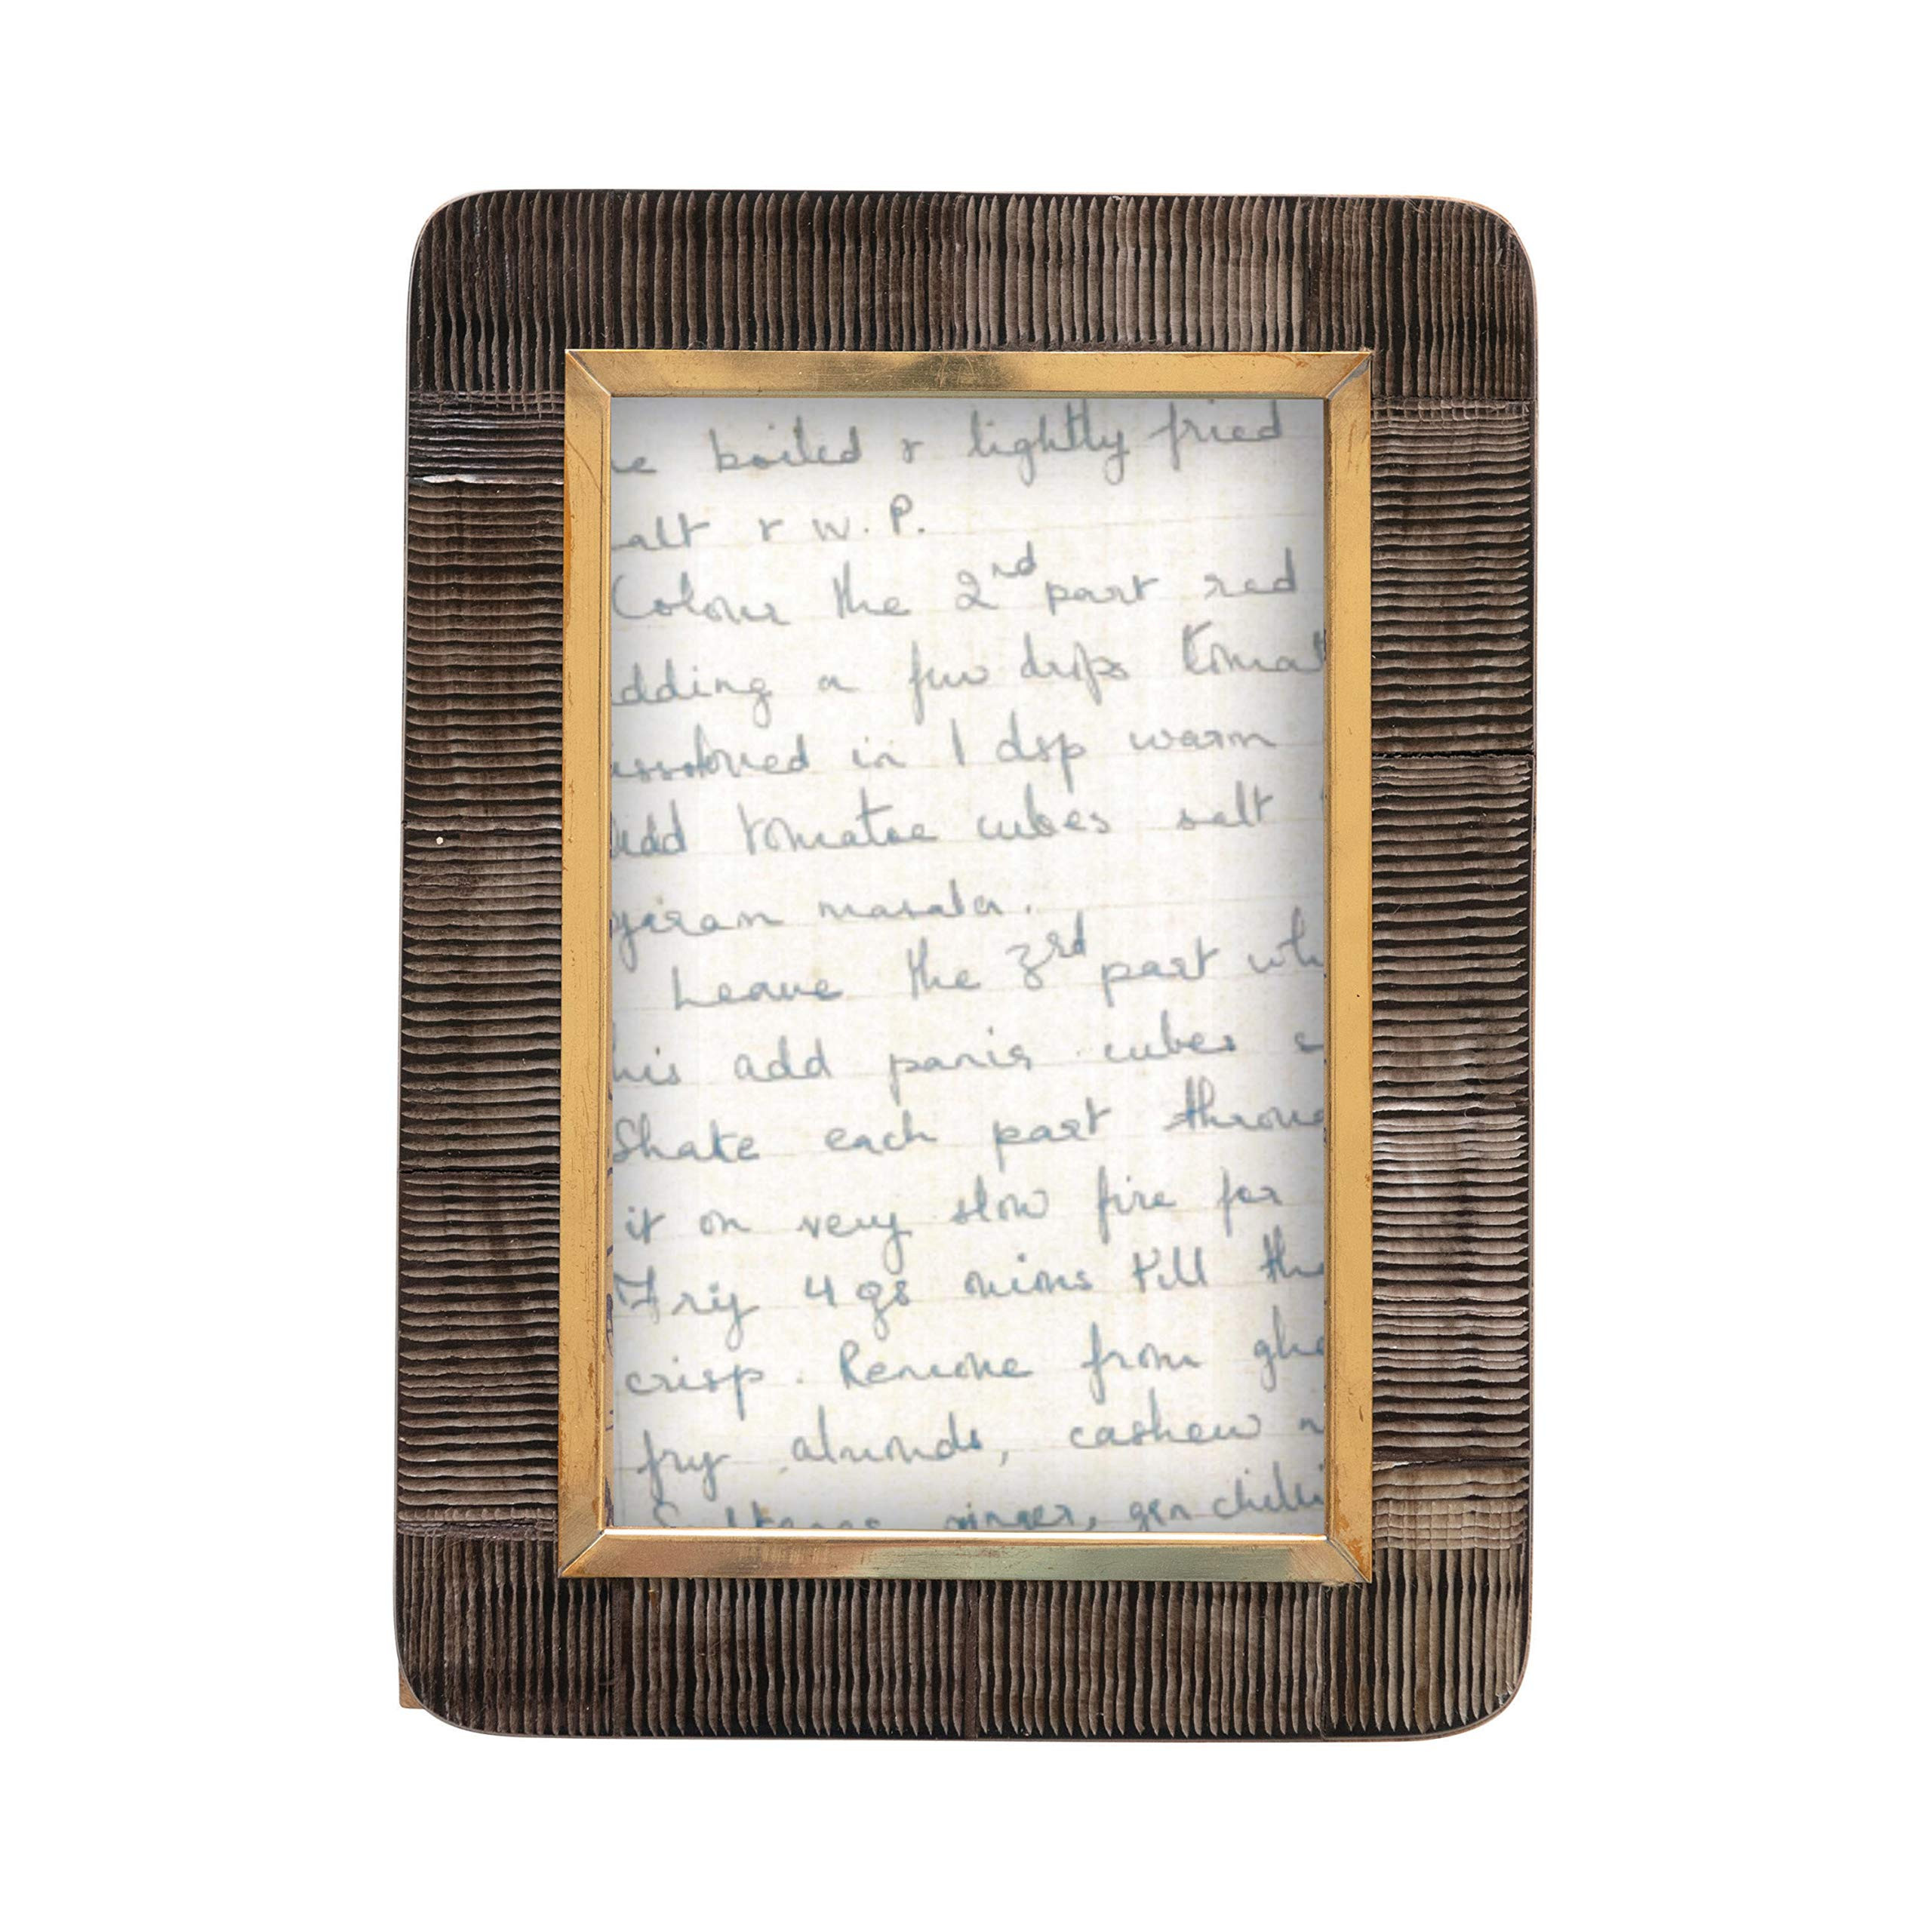 e boiled & lightly fried
alt & W.P.
Colour the 2nd part red
dding a few drops tomat
issolved in 1 dsp warm
Add tomatoe cubes salt
garam masala.
Leave the 3rd part wh
his add panir cubes s
Shake each part throug
it on very slow fire for
Fry 4 gs onions till the
crisp. Remove from ghe
fry almonds, cashew n
Sultanas ginger, grn chilli